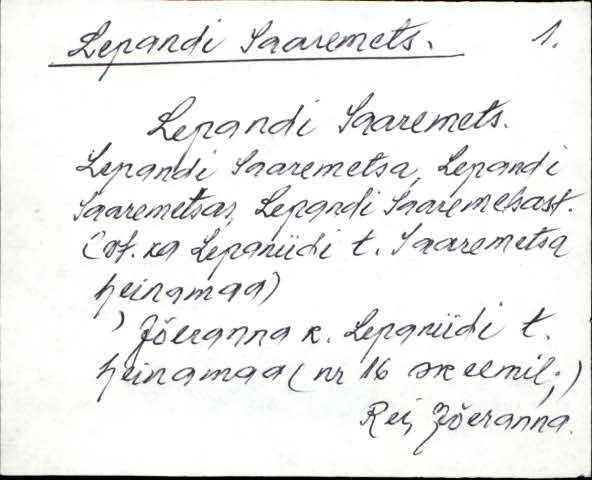 Lepandi Saaremets. 1.
Lepandi Saaremets.
Lepandi Saaremetsa, Lepandi
Saaremetsas, Lepandi Saaremetsast.
(vt. ka Lepaniidi t. Saaremetsa
heinamaa)
Jõeranna k. Lepaniidi t.
heinamaa (nr 16 skeemil;)
Rei, Jõeranna.